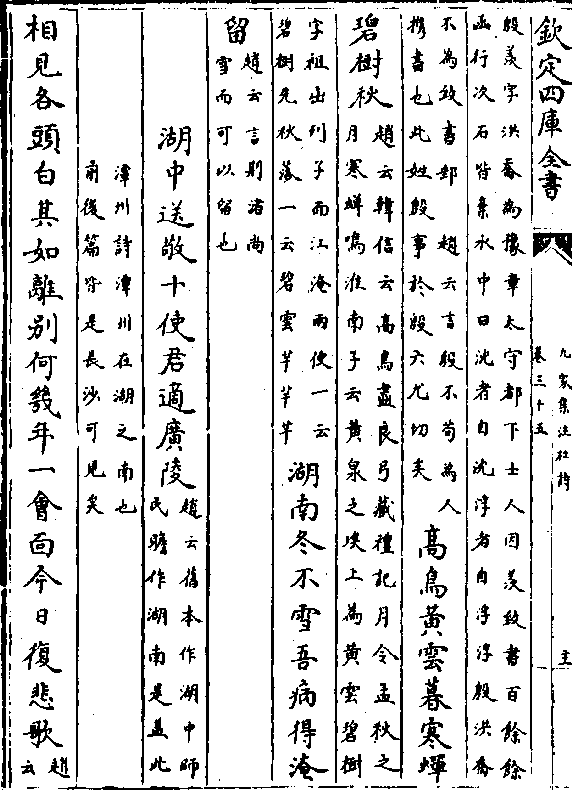 欽定四庫全書
九家集注杜詩
卷三十五
殷羨字洪喬為豫章太守都下士人因羨致書百餘餘
函行次石皆棄水中曰沈者自沈浮者自浮浮殷洪喬
不為致書郵　趙云言殷不苟為人
携書也此姓殷事於殷六尤切矣
高鳥黄雲暮寒蟬
碧樹秋
趙云韓信云高鳥盡良弓藏禮記月令孟秋之
月寒蟬鳴淮南子云黄泉之埃上為黄雲碧樹
字祖出列子而江淹兩使一云
碧樹先秋落一云碧雲芊芊芊
湖南冬不雪吾病得淹
留
趙云言則渚尚
雪而可以留也
湖中送敬十使君適廣陵
趙云舊本作湖中師
民瞻作湖南是蓋此
潭州詩潭州在湖之南也
前後篇皆是長沙可見矣
相見各頭白其如離别何幾年一會面今日復悲歌
趙
云